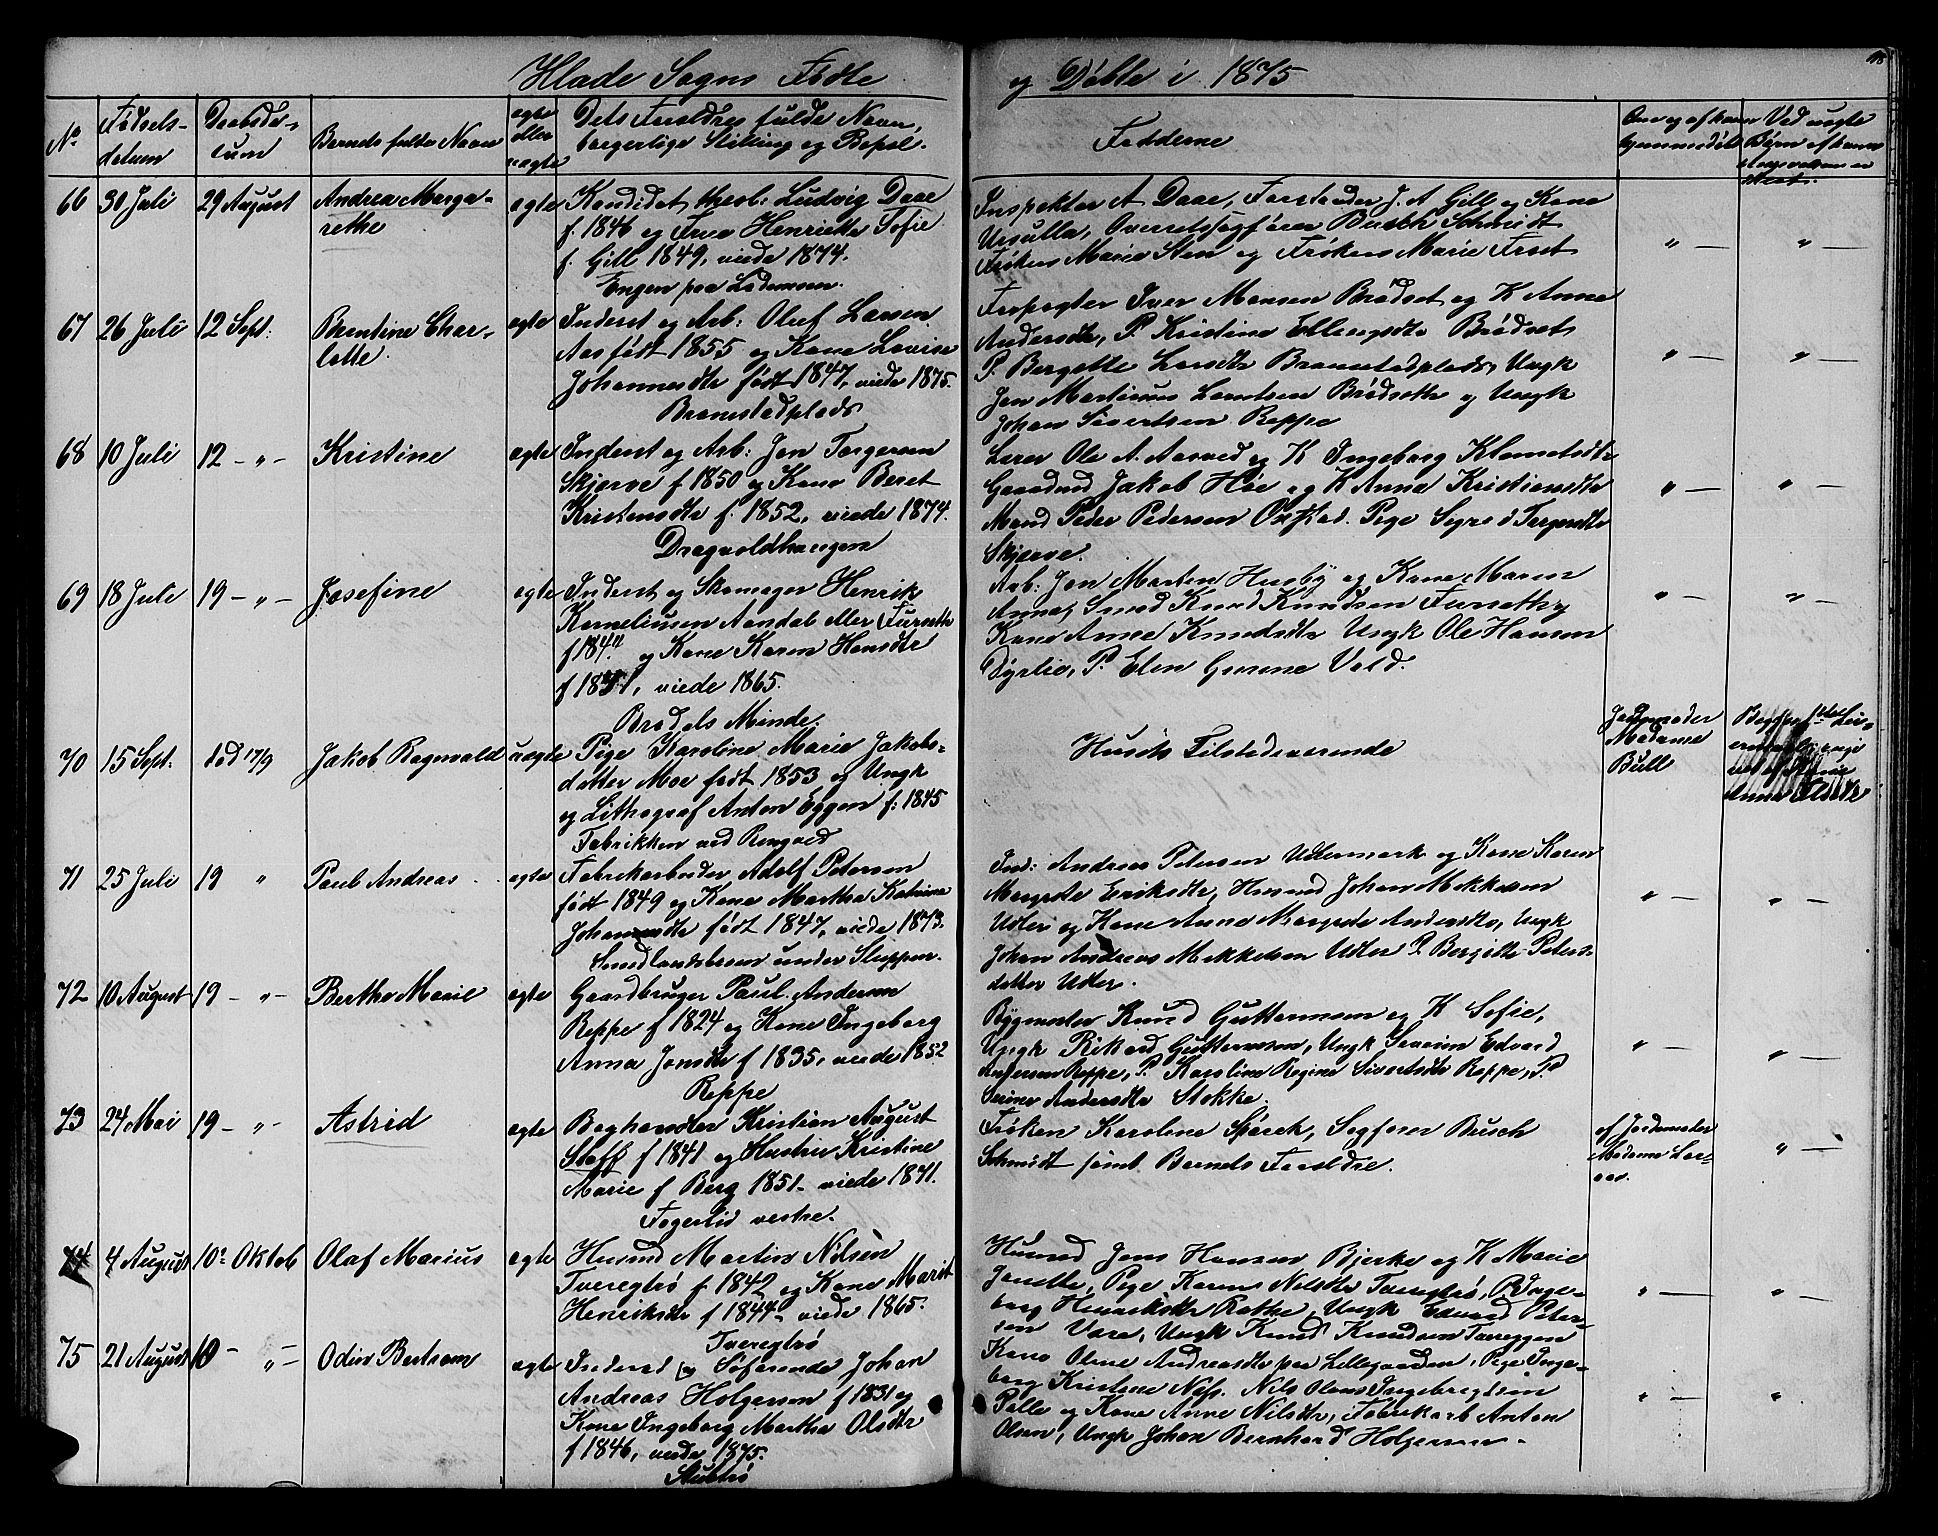 Hlade Sogns Fødte
og Døbte i 1875
No
Fødsels-
datum
Daabsda-
tum
Barnets fulde Navn
ægte
eller
uægte
Dets Forældres fulde Navn,
borgerlige Stilling og Bopæl.
Fadderne
hjemmedøbt
Ved uægte
66
30 Juli
29 August
Andrea Marga-
rethe
ægte
Kandidat theol: Ludvig Daae
f. 1846 og Frue Henriette Sofie
f. Gill 1849, viede 1874.
Engen paa Lademoen.
Inspektør A Daae, Forstander J. A Gill og Kone
Ursulla, Overretssagfører Busch Schmidt
Frøken Marie Sten og Frøken Marie Frost
" —
" —
67
26 Juli
12 Sept.
Berntine Char-
lotte.
ægte
Inderst og Arb: Oluf Larsen
Aas født 1855 og Kone Lovise
Johannesdtr født 1847, viede 1875.
Bromstadplads
Forpagter Iver Monsen Brødset og K Anne
Andersdtr, P. Kristine Ellingsdtr Brødset
P. Bergette Larsdtr Bromstadplads, Ungk
Jon Martinus Lorntsen Brødsete og Ungk
Johan Sivertsen Reppe
" —
" —
68
10 Juli
12 — " —
Kristine
ægte
Inderst og Arb: Jon Torgersen
Skjerve f 1850 og Kone Beret
Kristensdtr f. 1852, viede 1874.
Dragvoldhaugen
Lærer Ole A. Aasved og K Ingeborg Klometsdtr
Gaardmd Jakob Høe og K Anna Kristiansdtr
Mand Peder Pedersen Oxstad. Pige Sigrid Torgersdtr
Skjerve.
" —
" —
69
18 Juli
19 — " —
Josefine
ægte
Inderst og Skomager Henrik
Korneliussen Aandal eller Furseth
og Kone Karen Hansdtr
viede 1865.
Brødsets Minde.
Arb: Jon Morten Husby og Kone Maren
Anna, Smed Knud Knudsen Furseth og
Kone Anne Knudsdtr Ungk Ole Hansen
Dyrlie, P. Elen Gurine Vold.
" —
" —
70
15 Sept.
død 17/9
Jakob Ragnvald
uægte
Pige Karoline Marie Jakobs-
datter Moe født 1853 og Ungk
og Lithograf Anton Eggen f: 1845
Fabrikken ved Ranveid
Husets Tilstedeværende
Jordemoder
Madame
Bull
71
25 Juli
19 "
Paul Andreas
ægte
Fabrikarbeider Adolf Petersen
født 1849 og Kone Martha Katrine
Johannesdtr født 1847, viede 1873.
under Sluppen.
Ind: Andreas Petersen Udlermark og Kone Karen
Margrete Eriksdtr, Husmd Johan Mikkelsen
Udler og Kone Anne Margrete Andersdtr, Ungk
Johan Andreas Mikkelsen Udler P. Bergitte Peters-
datter Udler.
" —
" —
72
10 August
19 — " —
Berthe Marie
ægte
Gaardbruger Paul Andersen
Reppe f 1824 og Kone Ingeborg
Anna Jonsdtr f 1835, viede 1852
Reppe
Bygmester Knud Guttormsen og K Sofie,
Ungk Rikard Guttormsen, Ungk Severin Edvard
Andersen Reppe, P. Karoline Regine Sivertsdtr Reppe, P.
Serine Andersdtr Stokke.
" —
" —
73
24 Mai
19 — " —
Astrid
ægte
Boghandler Kristian August
Staff f 1841 og Hustru Kristine
Marie f Berg 1851 - viede 1871.
Fagerlid vestre.
Frøken Karoline Spärck, Sagfører Busch
Schmidt samt Barnets Forældre.
af Jordemoder
Madame Lar-
sen.
" —
74
4 August
10. Oktob
Olaf Marius
ægte
Husmd Martin Nilsen
Tveregtrø f 1842 og Kone Marit
Henriksdtr f 1844 - viede 1865.
Tveregtrø
Husmd Jens Hansen Bjerke og K Marie
Janette, Pige Karen Nilsdtr Tveregtrø, P. Inge-
borg Henriksdtr Rathe, Ungk Edvard Peter-
sen Være, Ungk Knud Knudsen Tvereggen
" —
" —
75
21 August
10 — " —
Odin Bertram
ægte
Inderst og Søfarende Johan
Andreas Holgersen f 1831 og
Kone Ingeborg Martha Olsdtr
f 1846, viede 1875.
Stubtrø
Kone Oline Andreasdtr paa Lillegaarden, Pige Inge-
borg Kristine Næss. Nils Olaus Ingebrigtsen
Pelle og Kone Anne Nilsdtr, Fabrikarb Anton
Olsen, Ungk Johan Bernhard Holgersen -
" —
"